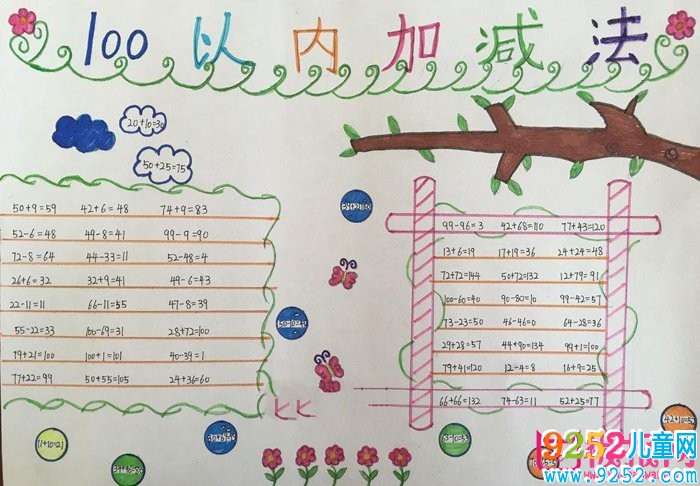 100以内加减法
20+10=30
50+25=75
50+9=59 42+6=48 74+9=83
52-6=48 49-8=41 99-9=90
72-8=64 44-33=11 52-48=4
26+6=32 32+9=41 49-6=43
22-11=11 66-11=55 47-8=39
55-22=33 100-69=31 28+72=100
79+21=100 100+1=101 40-39=1
77+22=99 50+55=105 24+36=60
99-96=3 42+68=110 77+43=120
13+6=19 17+19=36 24+24=48
72+72=144 50+72=132 12+79=91
100-60=40 90-80=10 99-42=57
73-23=50 46-46=0 64-28=36
29+28=57 44+90=134 99+1=100
79+41=120 12-4=8 16+9=25
66+66=132 74-63=11 52+25=77
11+10=21
9252儿童网
www.9252.com